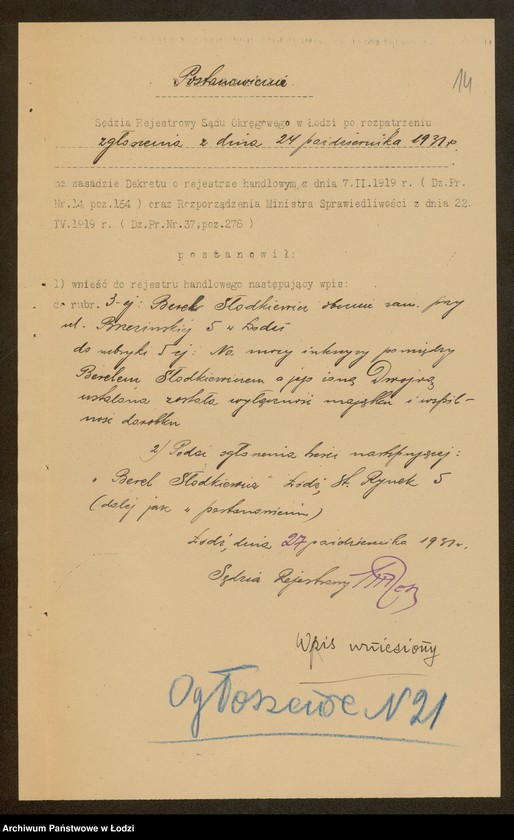 14
Postanowienie
Sędzia Rejestrowy Sądu Okręgowego w Łodzi po rozpatrzeniu
zgłoszenia z dnia 24 października 1931 r.
na zasadzie Dekretu o rejestrze handlowym z dnia 7.II.1919 r. ( Dz.Pr.
Nr.14 poz.164 ) oraz Rozporządzenia Ministra Sprawiedliwości z dnia 22.
IV.1919 r. ( Dz.Pr.Nr.37,poz.278 )
p o s t a n o w i ł :
1) wnieść do rejestru handlowego następujący wpis:
do rubr. 3-ej: Berek Słodkiewicz obecnie zam. przy
ul. Brzezińskiej 5 w Łodzi
do rubryki 5 ej: Na mocy intercyzy pomiędzy
Berelem Słodkiewiczem a jego żoną Dwojrą
ustalona została wyłączność majątku i wspól-
ność dorobku
2) Podać ogłoszenia treści następującej:
"Berel Słodkiewicz" Łódź, St. Rynek 5
(dalej jak w postanowieniu)
Łódź, dnia 27 października 1931 r.
Sędzia Rejestrowy
Wpis wniesiony
Ogłoszenie N 21
Archiwum Państwowe w Łodzi